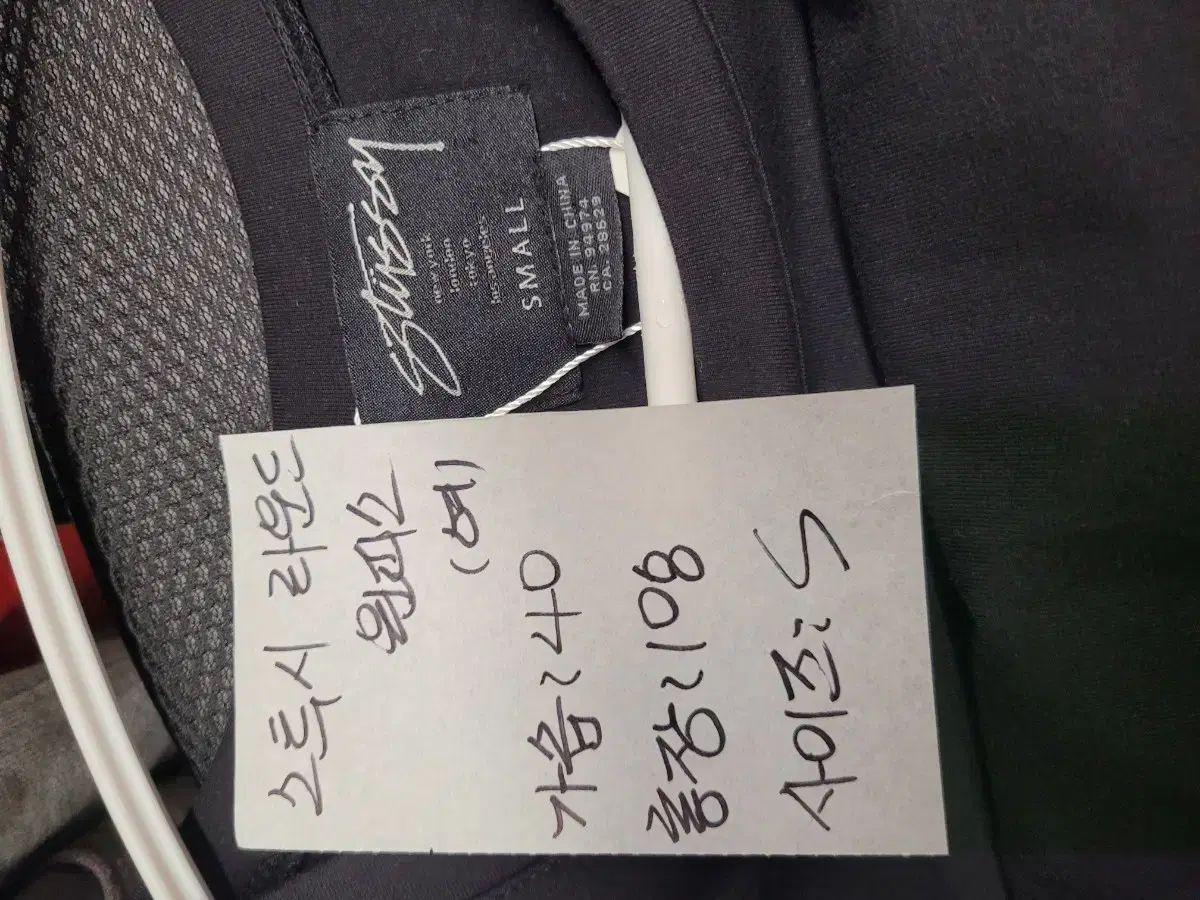 Stüssy
new york
london
tokyo
los angeles
SMALL
MADE IN CHINA
RN. 94974
CA. 28629
스톡시 라운드
원피스
(여)
가슴: 40
총장: 108
사이즈: S